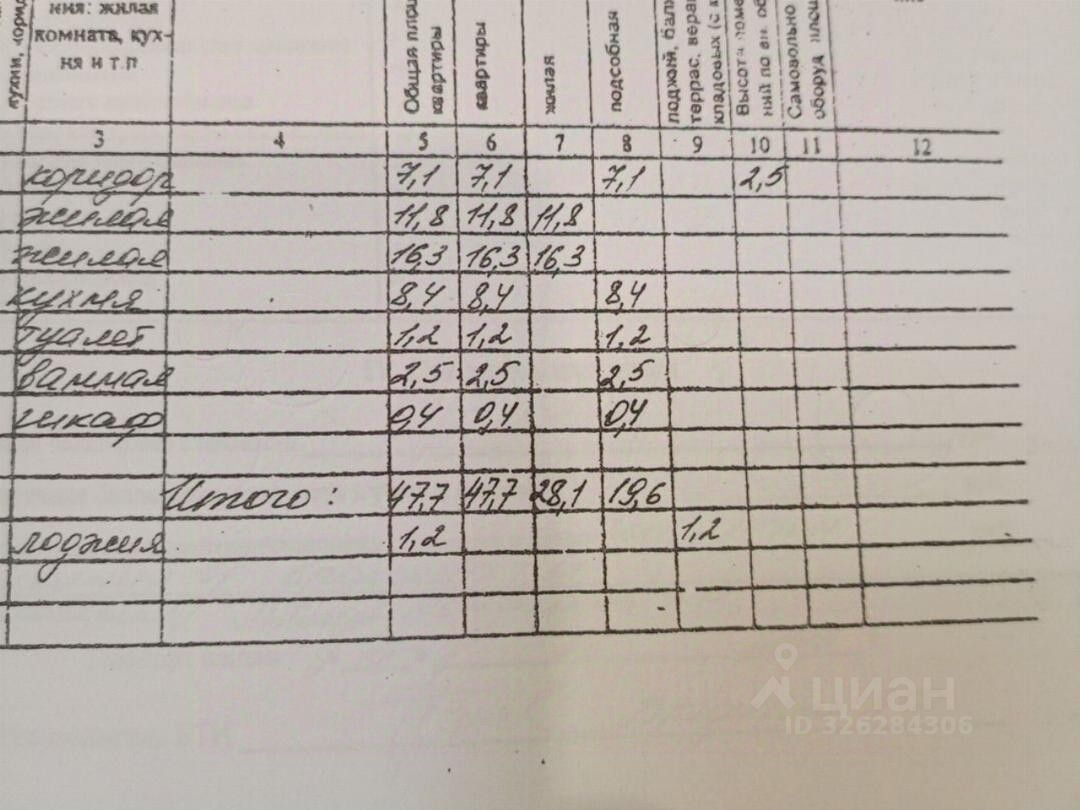 ния: жилая
комната, кух-
ня и т.п
кухни, корид
Общая площ
квартиры
квартиры
жилая
подсобная
лоджий, балк
террас, веран
кладовых (с к
Высота поме
ний по вн. об
Самовольно
оборуд площ
3 4 5 6 7 8 9 10 11 12
коридор 7,1 7,1 7,1 2,5
жилая 11,8 11,8 11,8
жилая 16,3 16,3 16,3
кухня 8,4 8,4 8,4
туалет 1,2 1,2 1,2
ванная 2,5 2,5 2,5
шкаф 0,4 0,4 0,4
Итого: 47,7 47,7 28,1 19,6
лоджия 1,2 1,2
циан
ID 326284306